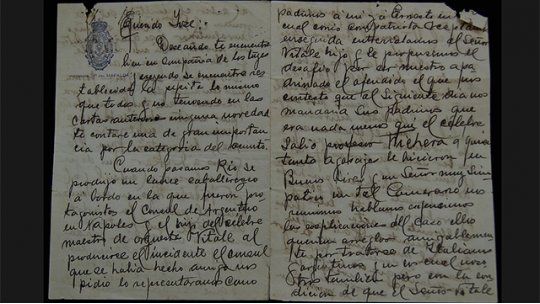 Querido José:
Deseando te encuentres
bien en compañía de los tuyos
y cuando se encuentre res
tablecida la pepita lo mismo
que todos y no teniendo en las
cartas anteriores ninguna novedad
te contaré una de gran importan
cia por la categoría del asunto.
Cuando pasamos Rio se
produjo un lance caballeresco
a bordo en la que fueron pro
tagonistas el Consul de Argentino
en Napoles y el hijo del celebre
maestro de orquesta Vitale, al
producirse el incidente el consul
que se había hecho amigo nos
pidio le representaramos como
padrinos a mi y a Ernesto
cual como compatriota
enseguida entrevistamos al Señor
Vitale hijo y le propusimos el
desafio por ser nuestro apa
drinado el ofendido el que nos
contesto que al siguiente dia nos
mandaria sus padrinos que
era nada menos que el celebre
Italio profesor Pichera a quien
tanto le hicieron en
Buenos Aires y un Señor muy Sim
patico un tal Camerano nos
reunimos hablamos
las esplicaciones del caso ellos
querian arreglar amigablemen
te por tratarse de Italianos
Argentinos y en cual nos
otros tambien pero con la con
dición de que el Señor Vitale